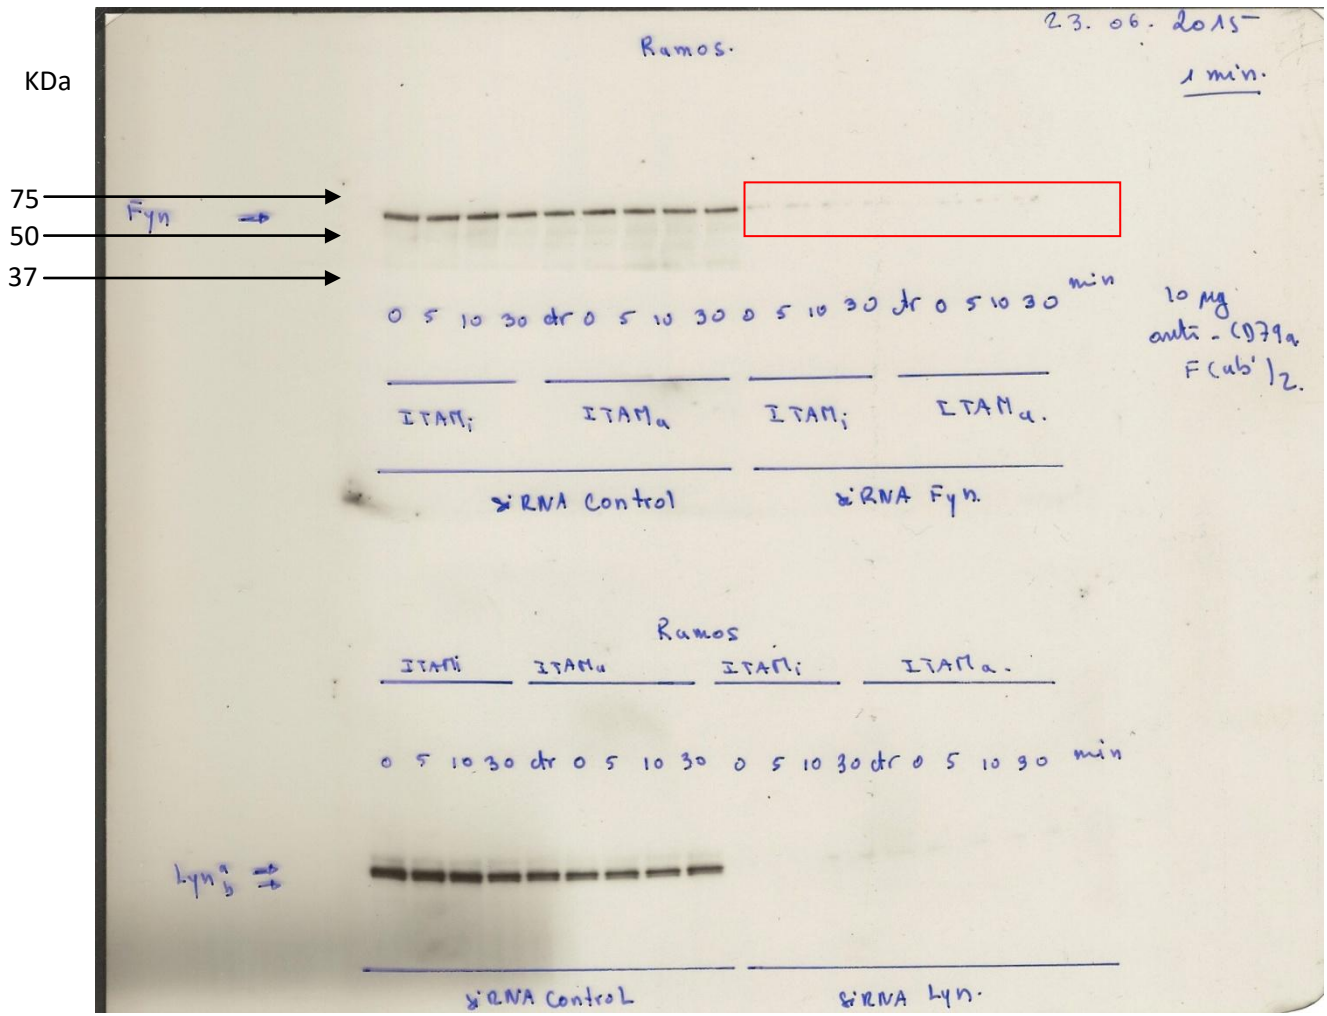 23. 06. 2015
Ramos.
1 min.
KDa
75
Fyn
50
37
0 5 10 30 ctr 0 5 10 30 0 5 10 30 ctr 0 5 10 30 min
10 µg
anti-CD79a
F(ab')2.
ITAMi ITAMa ITAMi ITAMa.
siRNA Control siRNA Fyn.
Ramos
ITAMi ITAMa ITAMi ITAMa.
0 5 10 30 ctr 0 5 10 30 0 5 10 30 ctr 0 5 10 30 min
Lyn a
b
siRNA Control siRNA Lyn.